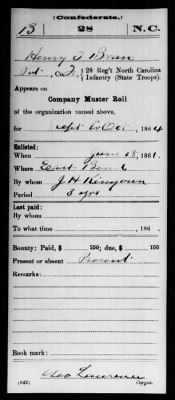 (Confederate.)
B 28 N.C.
Henry T
Pvt., Co. , 28 Reg't North Carolina
Infantry (State Troops).
Appears on
Company Muster Roll
of the organization named above,
for Sept & Oct, 1864
Enlisted:
When June 18, 1861.
Where East Bend
By whom J H Kinyoun
Period 3 yrs
Last paid:
By whom
To what time , 186 .
Bounty: Paid, $ 100; due, $ 100
Present or absent Present
Remarks:
Book mark:
Geo
(642) Copyist.